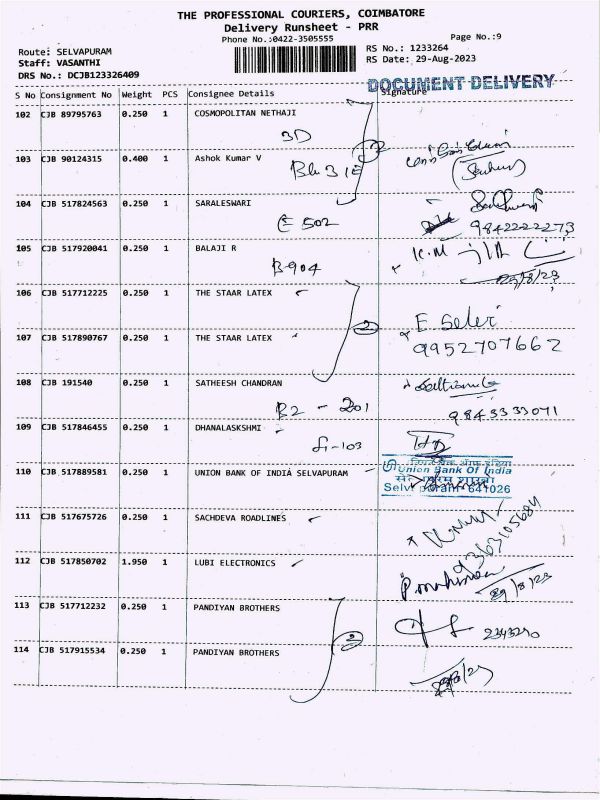 THE PROFESSIONAL COURIERS, COIMBATORE
Delivery Runsheet - PRR
Phone No.:0422-3505555 Page No.:9
Route: SELVAPURAM RS No.: 1233264
Staff: VASANTHI RS Date: 29-Aug-2023
DRS No.: DCJB123326409
DOCUMENT DELIVERY
S No Consignment No Weight PCS Consignee Details Signature
102 CJB 89795763 0.250 1 COSMOPOLITAN NETHAJI
3D
103 CJB 90124315 0.400 1 Ashok Kumar V
104 CJB 517824563 0.250 1 SARALESWARI
E 502
9842222273
105 CJB 517920041 0.250 1 BALAJI R K.M
B-904
106 CJB 517712225 0.250 1 THE STAAR LATEX
2
E Selvi
107 CJB 517890767 0.250 1 THE STAAR LATEX
9952707662
108 CJB 191540 0.250 1 SATHEESH CHANDRAN
B2 - 201
9843333071
109 CJB 517846455 0.250 1 DHANALASKSHMI
110 CJB 517889581 0.250 1 UNION BANK OF INDIA SELVAPURAM
Union Bank Of India
641026
111 CJB 517675726 0.250 1 SACHDEVA ROADLINES
112 CJB 517850702 1.950 1 LUBI ELECTRONICS
29/8/23
113 CJB 517712232 0.250 1 PANDIYAN BROTHERS
2
114 CJB 517915534 0.250 1 PANDIYAN BROTHERS